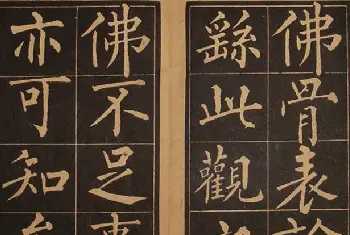 佛骨表
繇此觀
佛不足事
亦可知